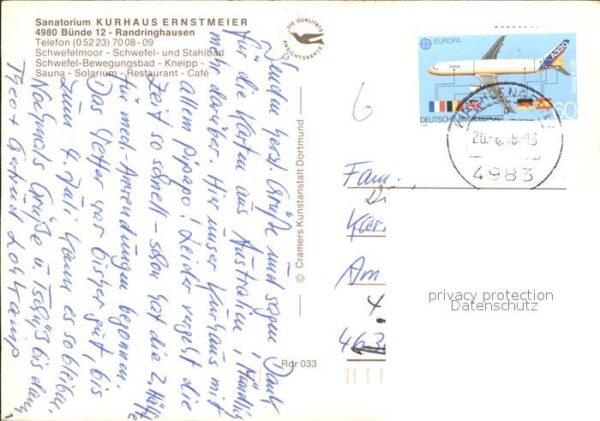 Sanatorium KURHAUS ERNSTMEIER
4980 Bünde 12 - Randringhausen
Telefon (0 52 23) 70 08 - 09
Schwefelmoor - Schwefel- und Stahlbad
Schwefel-Bewegungsbad - Kneipp -
Sauna - Solarium - Restaurant - Café
DIE QUALITÄTS
ANSICHTSKARTE
Senden herzl. Grüße und sagen Dank
für die Karten aus Australien, Mündlich
mehr darüber. Hier unser Kurhaus mit
allem Pipapo! Leider vergeht die
Zeit so schnell - schon hat die 2. Hälfte
für med. Anwendungen begonnen.
Das Wetter war bisher gut, bis
zum 4. Juli kann es so bleiben.
Nochmals Grüße u. Tschüß bis dann,
Theo + Gertrud
© Cramers Kunstanstalt Dortmund
Rdr 033
6
EUROPA
A320
DEUTSCHE BUNDESPOST
60
4983
Fam.
Am
463
privacy protection
Datenschutz